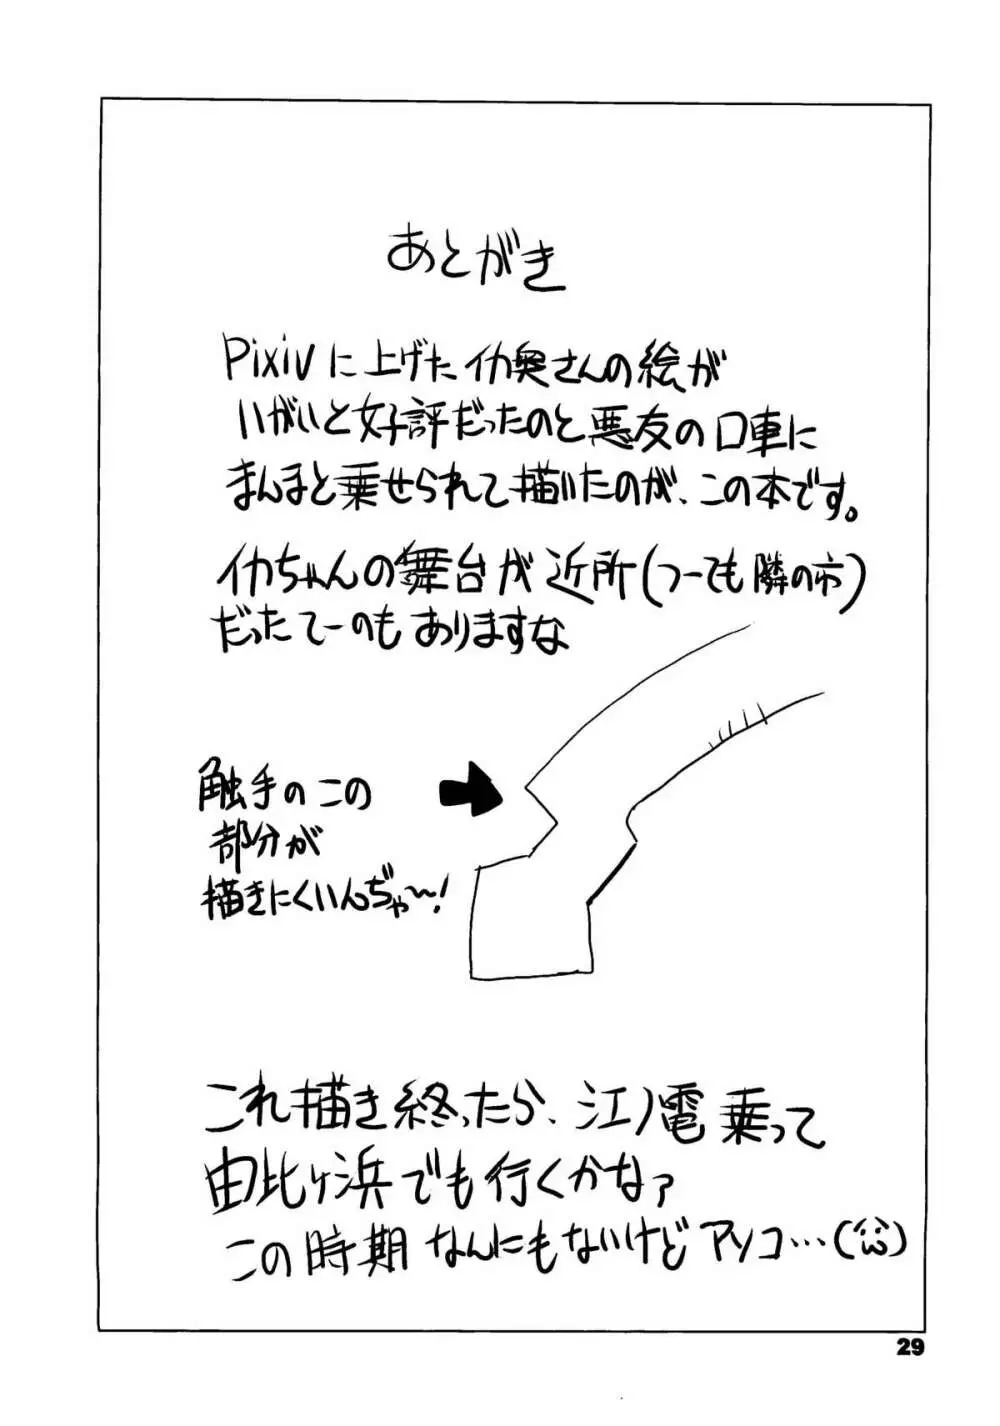 あとがき
Pixivに上げたイカ奥さんの絵が
いがいと好評だったのと悪友の口車に
まんまと乗せられて描いたのが、この本です。
イカちゃんの舞台が近所(つーても隣の市)
だったてーのもありますな
触手のこの
部分が
描きにくいんぢゃ〜!
これ描き終ったら、江ノ電乗って
由比ヶ浜でも行くかなァ
この時期なんにもないけどアソコ…(^^)
29